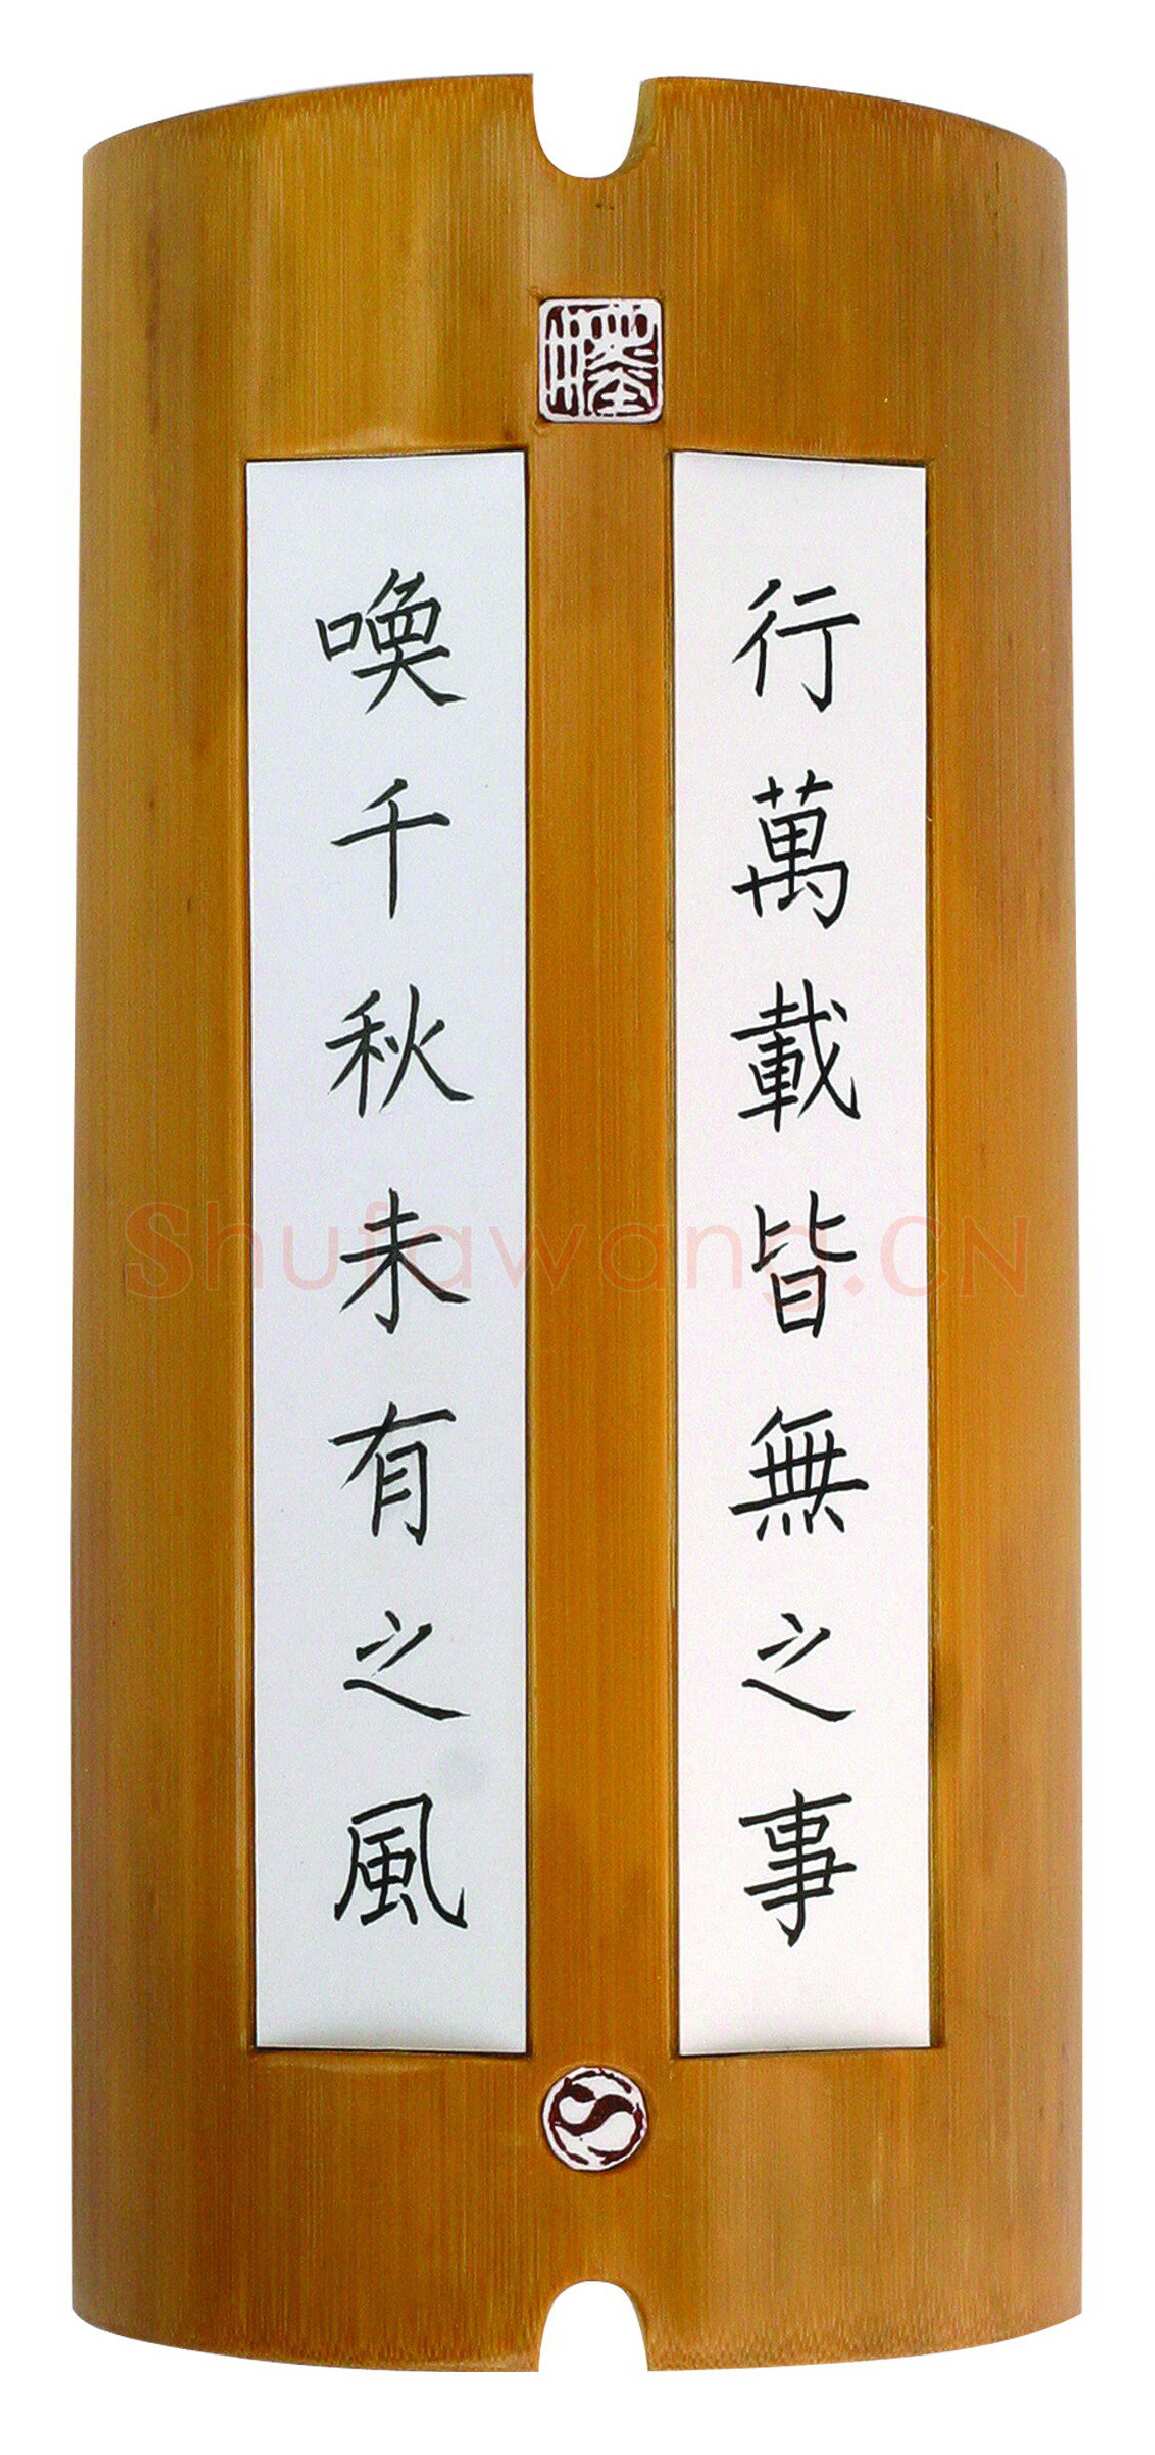 行萬載皆無之事
喚千秋未有之風
Shufawang.CN